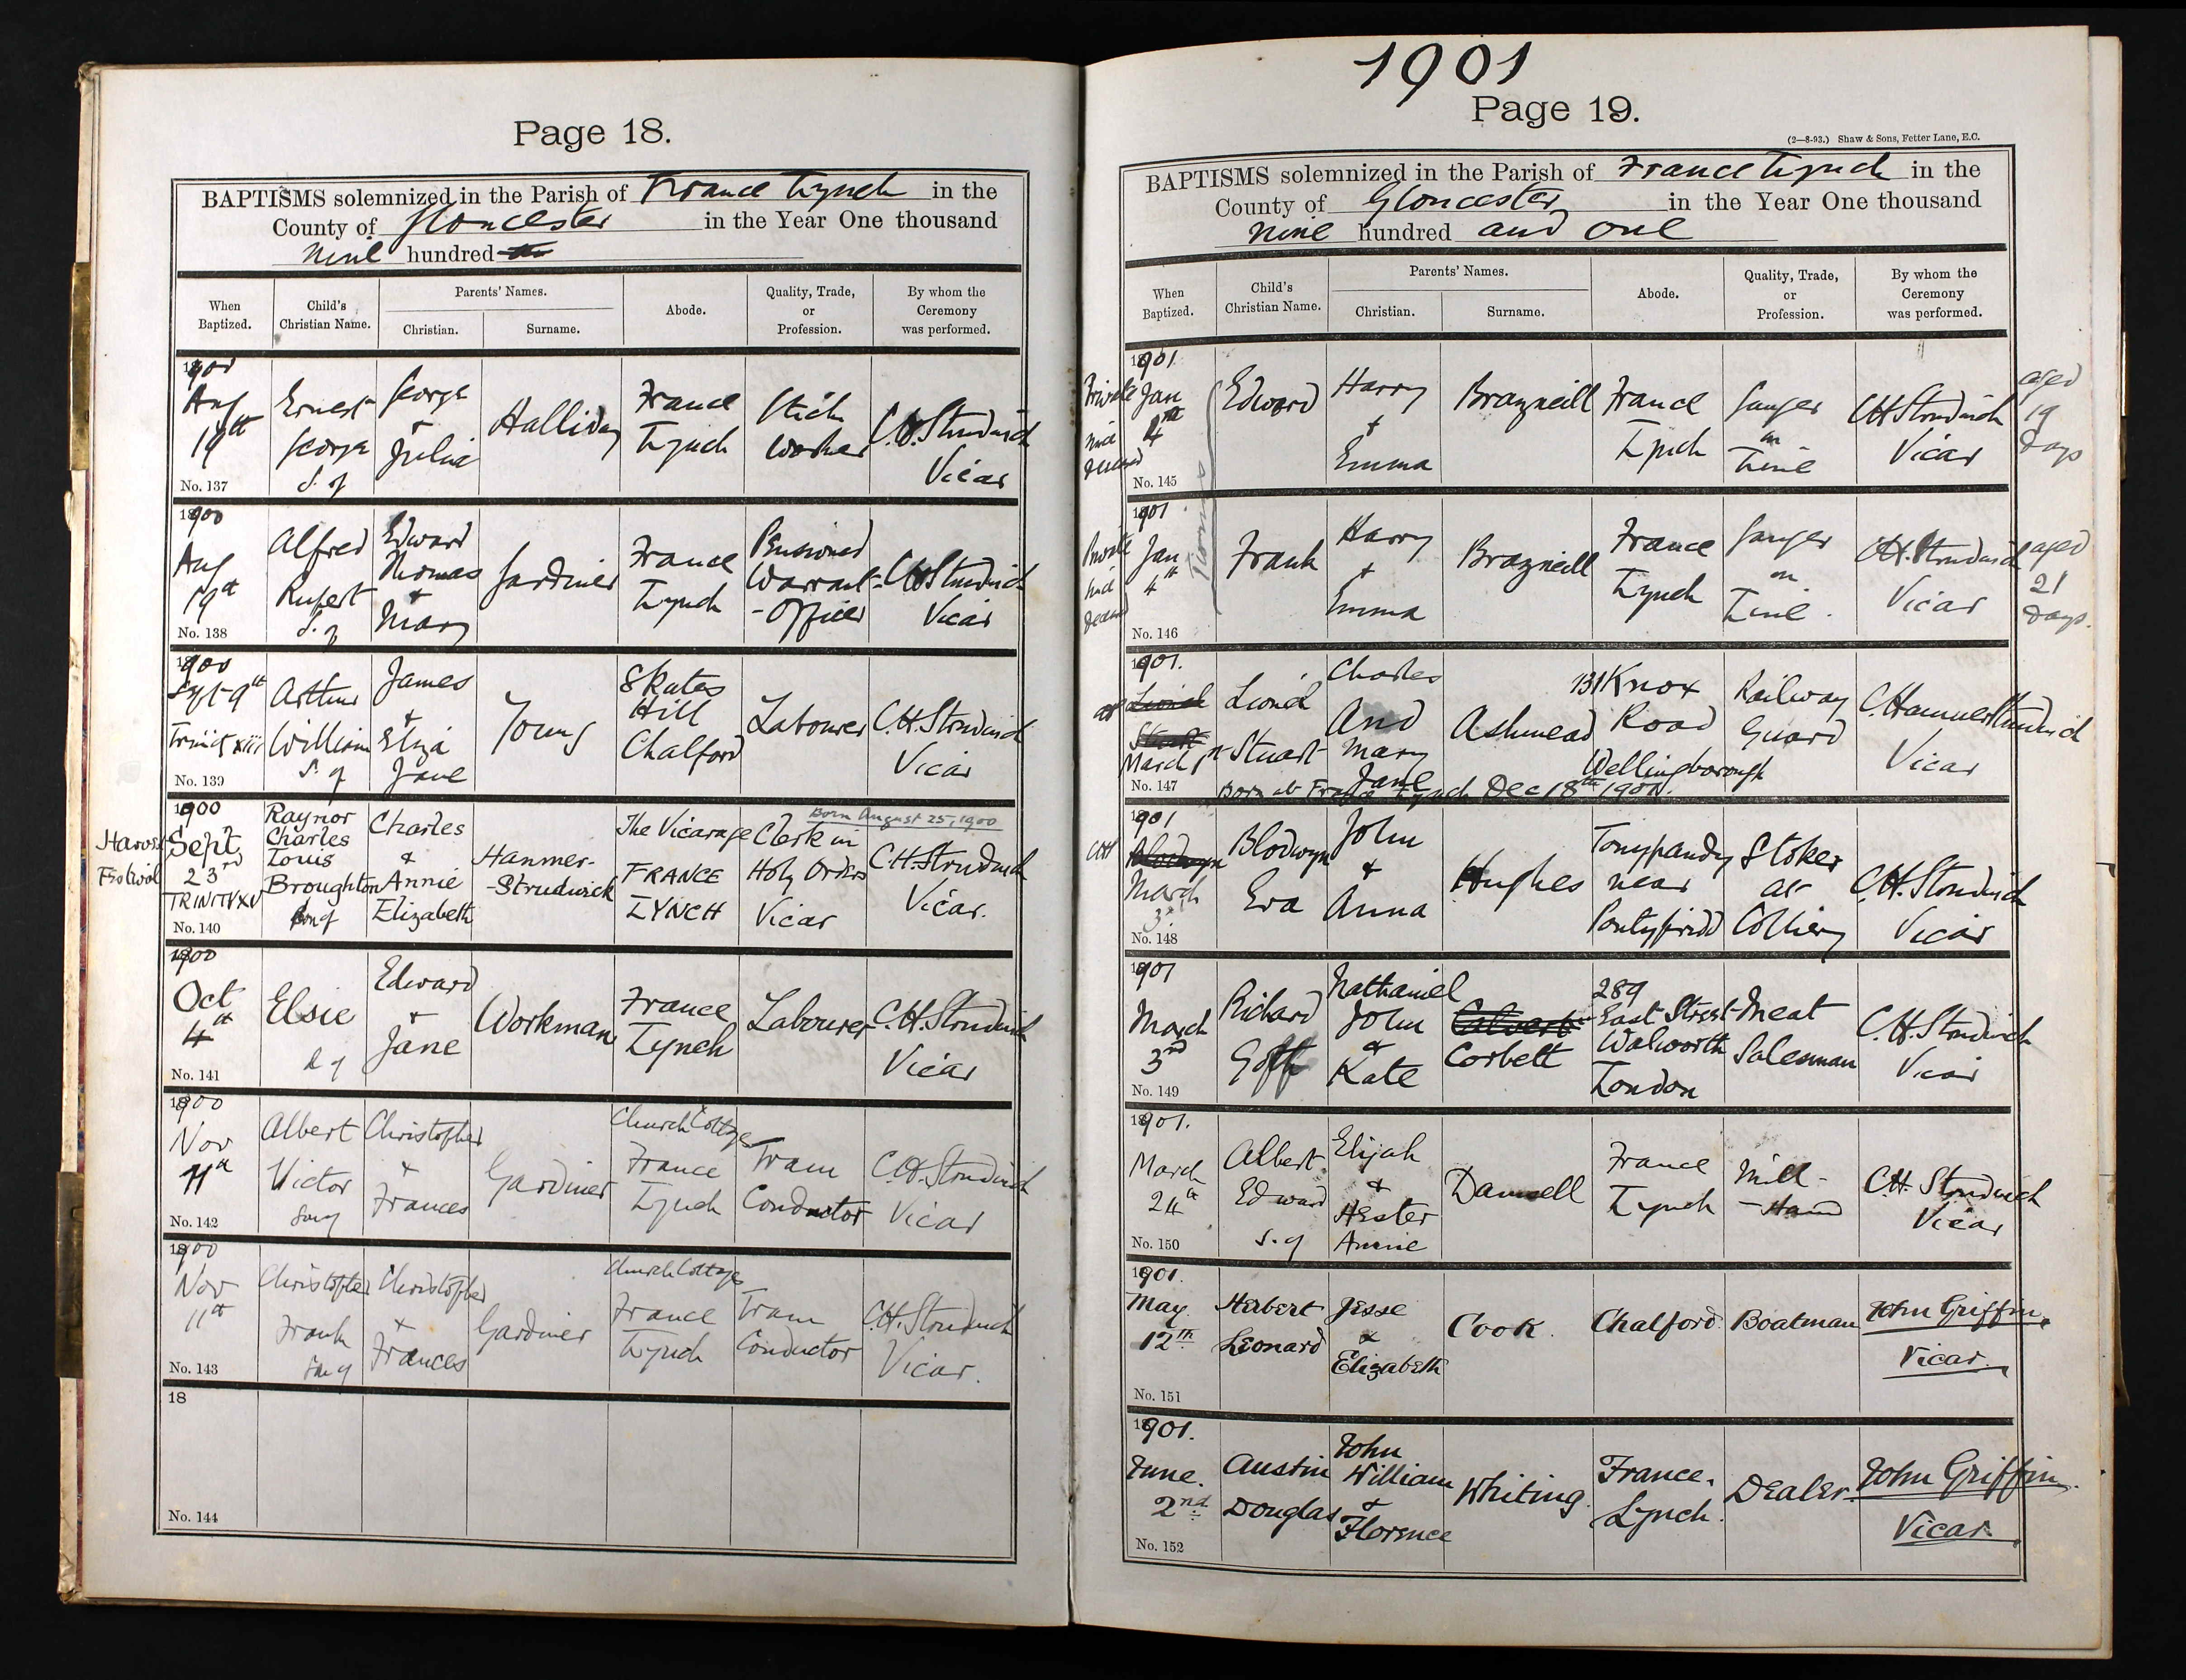 Page 18.
BAPTISMS solemnized in the Parish of France Lynch in the
County of Gloucester in the Year One thousand
Nine hundred
When Baptized.
Child's Christian Name.
Parents' Names.
Christian.
Surname.
Abode.
Quality, Trade, or Profession.
By whom the Ceremony was performed.
1900
Aug
19th
No. 137
Ernest
George
S. of
George
+
Julia
Halliday
France
Lynch
Stick
Worker
C.H. Strudwick
Vicar
1900
Aug
19th
No. 138
Alfred
Rupert
S. of
Edward
Thomas
+
Mary
Gardiner
France
Lynch
Pensioned
Warrant-
-Officer
C.H. Strudwick
Vicar
1900
Sept 9th
Trinity xiii
No. 139
Arthur
William
S. of
James
+
Eliza
Jane
Young
Skates
Hill
Chalford
Labourer
C.H. Strudwick
Vicar
Harvest
Festival
1900
Sept
23rd
TRINITY XV
No. 140
Raynor
Charles
Louis
Broughton
Son of
Charles
&
Annie
Elizabeth
Hanmer-
-Strudwick
The Vicarage
FRANCE
LYNCH
Born August 25, 1900
Clerk in
Holy Orders
Vicar
C.H. Strudwick
Vicar.
1900
Oct
4th
No. 141
Elsie
d of
Edward
+
Jane
Workman
France
Lynch
Labourer
C.H. Strudwick
Vicar
1900
Nov
11th
No. 142
Albert
Victor
Son of
Christopher
+
Frances
Gardiner
Church Cottage
France
Lynch
Tram
Conductor
C.H. Strudwick
Vicar
1900
Nov
11th
No. 143
Christopher
Frank
Son of
Christopher
+
Frances
Gardiner
Church Cottage
France
Lynch
Tram
Conductor
C.H. Strudwick
Vicar.
18
No. 144
1901
Page 19.
(2—8-93.) Shaw & Sons, Fetter Lane, E.C.
BAPTISMS solemnized in the Parish of France Lynch in the
County of Gloucester in the Year One thousand
Nine hundred and one
When Baptized.
Child's Christian Name.
Parents' Names.
Christian.
Surname.
Abode.
Quality, Trade, or Profession.
By whom the Ceremony was performed.
Private
1901
Jan
4th
No. 145
Edward
Harry
+
Emma
Brazneill
France
Lynch
Ganger
on
Line
C.H. Strudwick
Vicar
aged
19
Days
Private
1901
Jan
4th
No. 146
Frank
Harry
+
Emma
Brazneill
France
Lynch
Ganger
on
Line.
C.H. Strudwick
Vicar
aged
21
Days.
1901.
Lionel
Stuart
March
No. 147
Lionel
Stuart
Charles
And
Mary
Jane
Ashmead
131 Knox
Road
Wellingborough
Railway
Guard
C. Hanmer Strudwick
Vicar
Born at France Lynch Dec 18th 1900.
1901
Blodwyn
March
3rd
No. 148
Blodwyn
Eva
John
+
Anna
Hughes
Tonypandy
near
Pontypridd
Stoker
at
Colliery
C.H. Strudwick
Vicar
1901
March
3rd
No. 149
Richard
Goff
Nathaniel
John
&
Kate
Calvert
Corbett
289
East Street
Walworth
London
Meat
Salesman
C.H. Strudwick
Vicar
1901.
March
24th
No. 150
Albert
Edward
S. of
Elijah
&
Hester
Annie
Damsell
France
Lynch
Mill-
-Hand
C.H. Strudwick
Vicar
1901.
May.
12th
No. 151
Herbert
Leonard
Jesse
&
Elizabeth
Cook.
Chalford.
Boatman
John Griffin.
Vicar.
1901.
June.
2nd
No. 152
Austin
Douglas
John
William
&
Florence
Whiting.
France.
Lynch.
Dealer.
John Griffin.
Vicar.